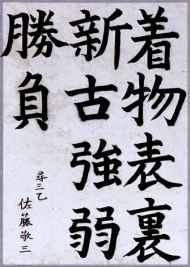 着物表裏
新古強弱
勝負
尋三乙
佐藤敬三